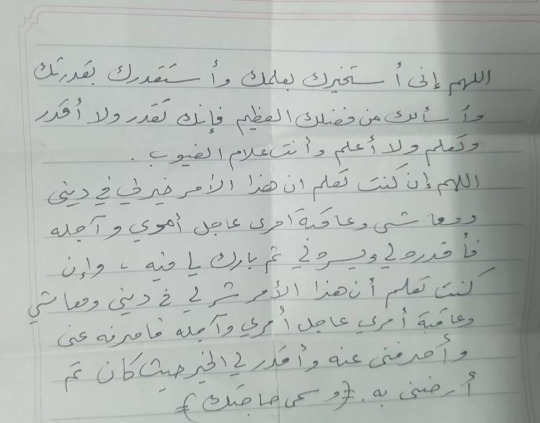 اللهم إنى أستخيرك بعلمك وأستقدرك بقدرتك
وأسألك من فضلك العظيم فإنك تقدر ولا أقدر
وتعلم ولا أعلم وأنت علام الغيوب .
اللهم إن كنت تعلم ان هذا الأمر خير لي في ديني
ومعاشي وعاقبة امرى عاجل أموري وآجله
فأقدره لي ويسره لي ثم بارك لي فيه ، وإن
كنت تعلم أن هذا الأمر شر لي في ديني ومعاشي
وعاقبة أمري عاجل أمري وآجله فاصرفه عنى
وأصرفنى عنه وأقدر لي الخير حيث كان ثم
أرضنى به . (وسمى حاجتك)